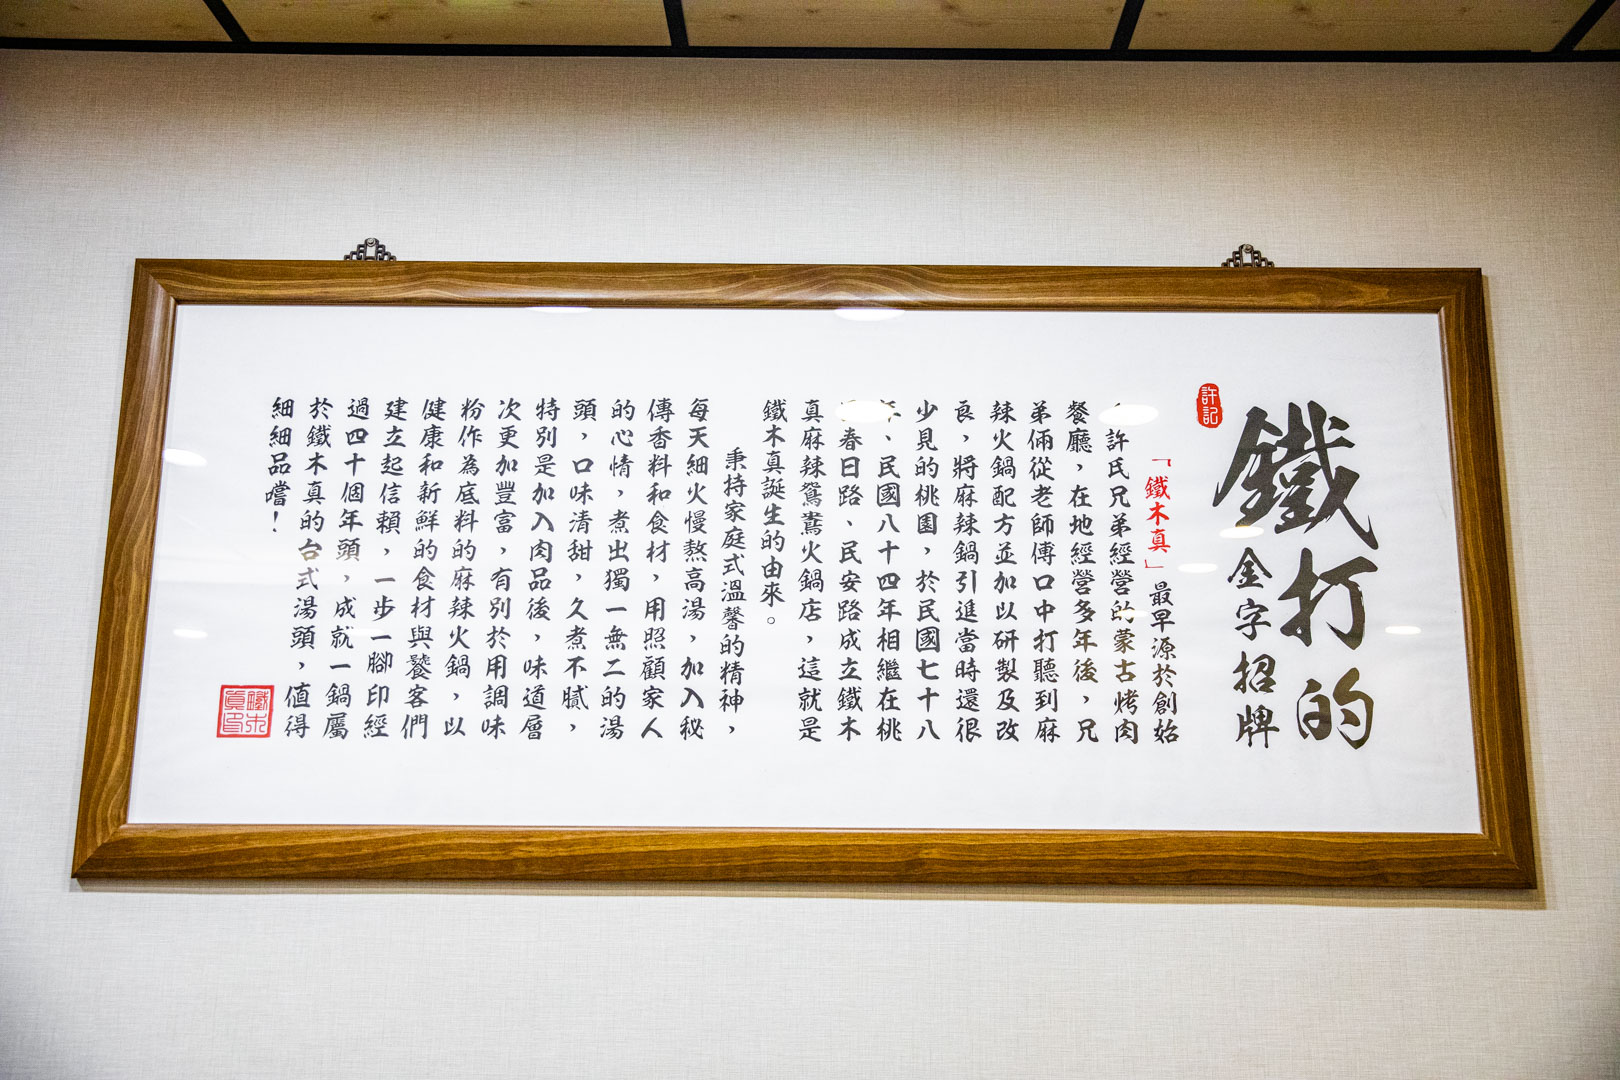 鐵打的
金字招牌
許記
「鐵木真」最早源於創始
許氏兄弟經營的蒙古烤肉
餐廳，在地經營多年後，兄
弟倆從老師傅口中打聽到麻
辣火鍋配方並加以研製及改
良，將麻辣鍋引進當時還很
少見的桃園，於民國七十八
年、民國八十四年相繼在桃
春日路、民安路成立鐵木
真麻辣鴛鴦火鍋店，這就是
鐵木真誕生的由來。
秉持家庭式溫馨的精神，
每天細火慢熬高湯，加入秘
傳香料和食材，用照顧家人
的心情，煮出獨一無二的湯
頭，口味清甜，久煮不膩，
特別是加入肉品後，味道層
次更加豐富，有別於用調味
粉作為底料的麻辣火鍋，以
健康和新鮮的食材與饕客們
建立起信賴，一步一腳印經
過四十個年頭，成就一鍋屬
於鐵木真的台式湯頭，值得
細細品嚐！
鐵木
真印